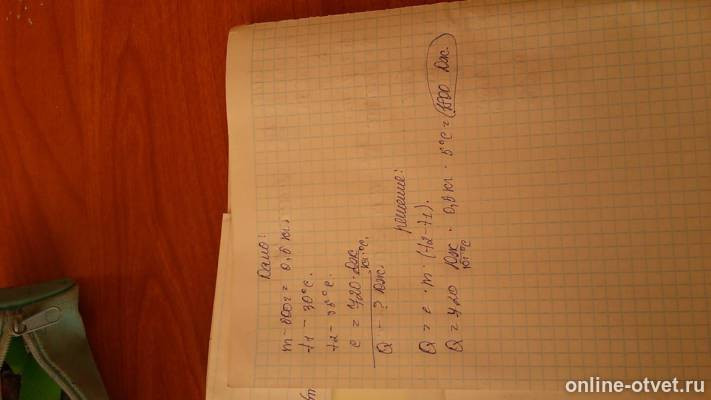 Дано:
m - 800г = 0,8 кг.
t1 - 30°C.
t2 - 35°C.
c = 420 Дж/кг·°C.
Q - ? Дж.
решение:
Q = c · m · (t2 - t1).
Q = 420 Дж/кг·°C · 0,8 кг · 5°C = Дж.
online-otvet.ru